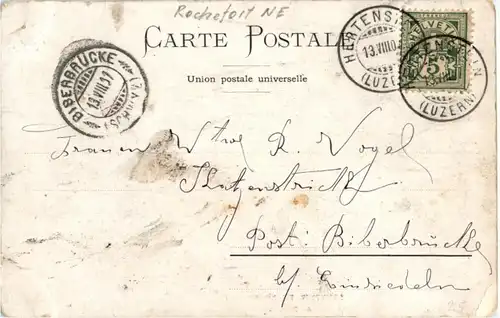 Rochefort NE
CARTE POSTALE
Union postale universelle
BIBERBRÜCKE
13.VIII.
HERTENSTEIN
13.VIII.0
(LUZERN)
HELVETIA
5
(LUZERN)
Frauen Wtwe R. Vogel
Post: Biberbrücke
b/ Einsiedeln